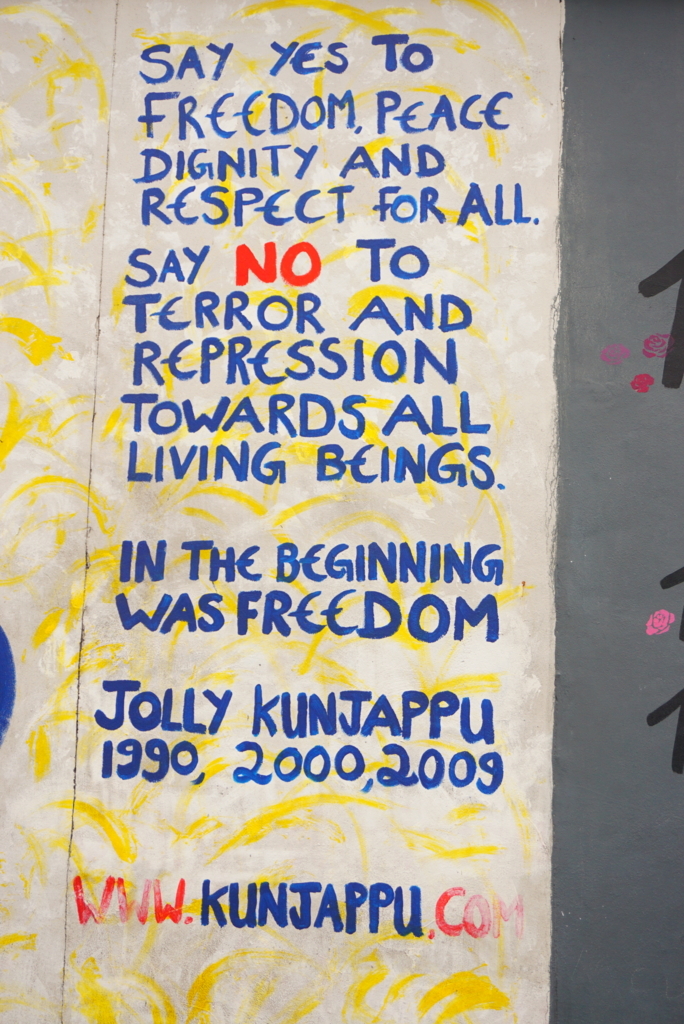 SAY YES TO
FREEDOM, PEACE
DIGNITY AND
RESPECT FOR ALL.
SAY NO TO
TERROR AND
REPRESSION
TOWARDS ALL
LIVING BEINGS.
IN THE BEGINNING
WAS FREEDOM
JOLLY KUNJAPPU
1990, 2000, 2009
WWW.KUNJAPPU.COM